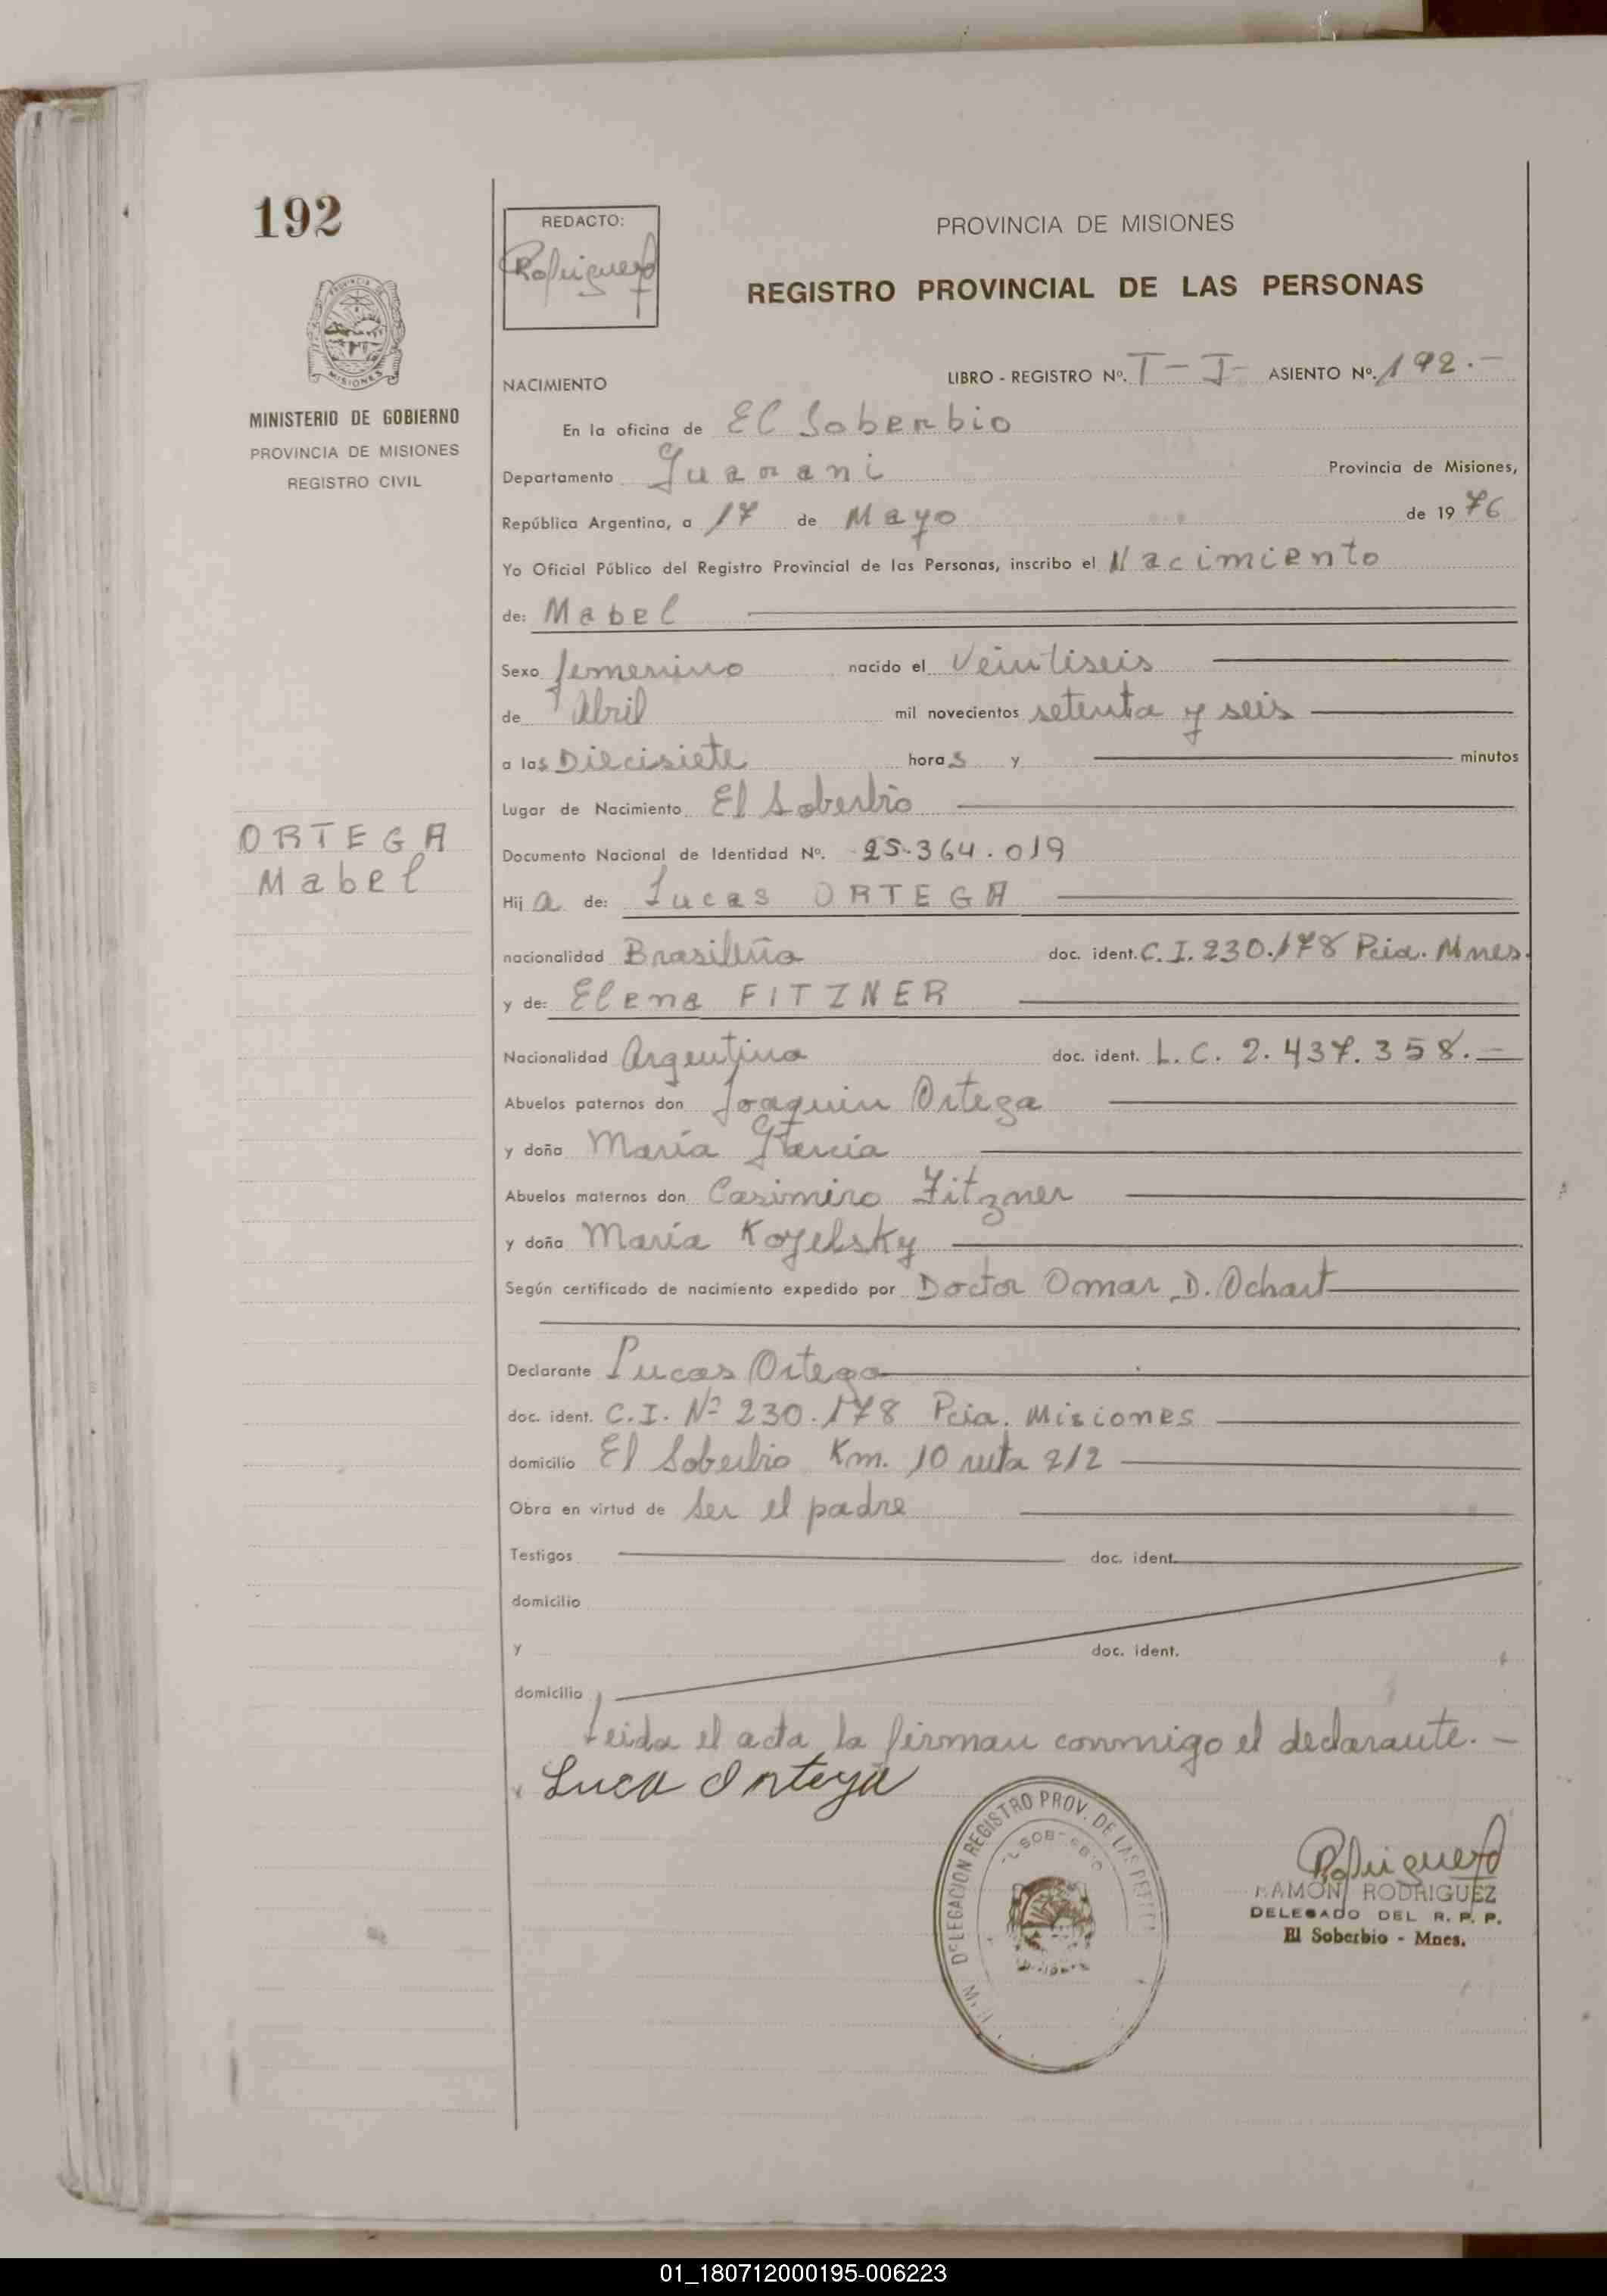 192
REDACTO:
Rodriguez
PROVINCIA DE MISIONES
REGISTRO PROVINCIAL DE LAS PERSONAS
PROVINCIA DE
MISIONES
MINISTERIO DE GOBIERNO
PROVINCIA DE MISIONES
REGISTRO CIVIL
NACIMIENTO
LIBRO - REGISTRO Nº. T - I - ASIENTO Nº. 192.-
En la oficina de El Soberbio
Departamento Guarani Provincia de Misiones,
República Argentina, a 17 de Mayo de 1976
Yo Oficial Público del Registro Provincial de las Personas, inscribo el Nacimiento
de: Mabel
Sexo femenino nacido el veintiseis
de Abril mil novecientos setenta y seis
a las Diecisiete horas y minutos
Lugar de Nacimiento El Soberbio
ORTEGA
Mabel
Documento Nacional de Identidad Nº. 25.364.019
Hija de: Lucas ORTEGA
nacionalidad Brasileña doc. ident. C.I. 230.178 Pcia. Mnes.
y de: Elena FITZNER
Nacionalidad Argentina doc. ident. L.C. 2.437.358.-
Abuelos paternos don Joaquin Ortega
y doña María Garcia
Abuelos maternos don Casimiro Fitzner
y doña María Kozelsky
Según certificado de nacimiento expedido por Doctor Omar D. Ochart
Declarante Lucas Ortega
doc. ident. C.I. Nº 230.178 Pcia. Misiones
domicilio El Soberbio Km. 10 ruta 212
Obra en virtud de ser el padre
Testigos doc. ident.
domicilio
y doc. ident.
domicilio
Leida el acta la firman conmigo el declarante.-
Luca Ortega
DELEGACION REGISTRO PROV. DE LAS
Rodriguez
RAMON RODRIGUEZ
DELEGADO DEL R. P. P.
El Soberbio - Mnes.
01_180712000195-006223